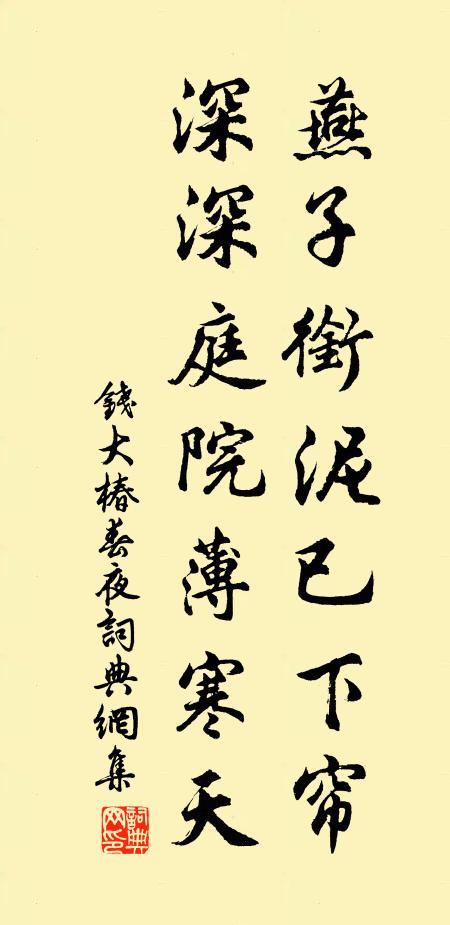 燕子銜泥已下帘
深深庭院薄寒天
錢大椿春夜詞典網集
詞典网印